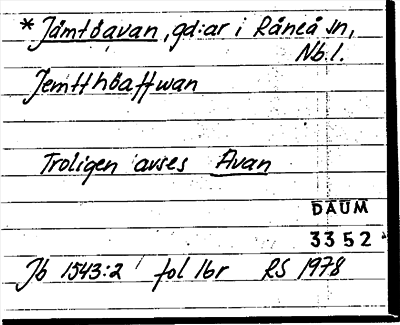 *Jämtöavan, gd:ar i Råneå sn,
Nb.l.
Jemtthöaffwan
Troligen avses Avan
DAUM
3352
Jb 1543:2 fol 16r RS 1978